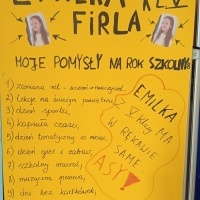 EMILKA KL V
FIRLA
MOJE POMYSŁY NA ROK SZKOLNY:
1) zamiana ról - uczeń - nauczyciel
2) lekcje na świeżym powietrzu
3) dzień sportu,
4) kapsuła czasu,
5) dzień tematyczny w miesiącu
6) dzień gier i zabaw,
7) szkolny mural,
8) muzyczna przerwa,
9) dni bez kartkówek,
EMILKA
Z V klasy MA
W RĘKAWIE
SAME
ASY!